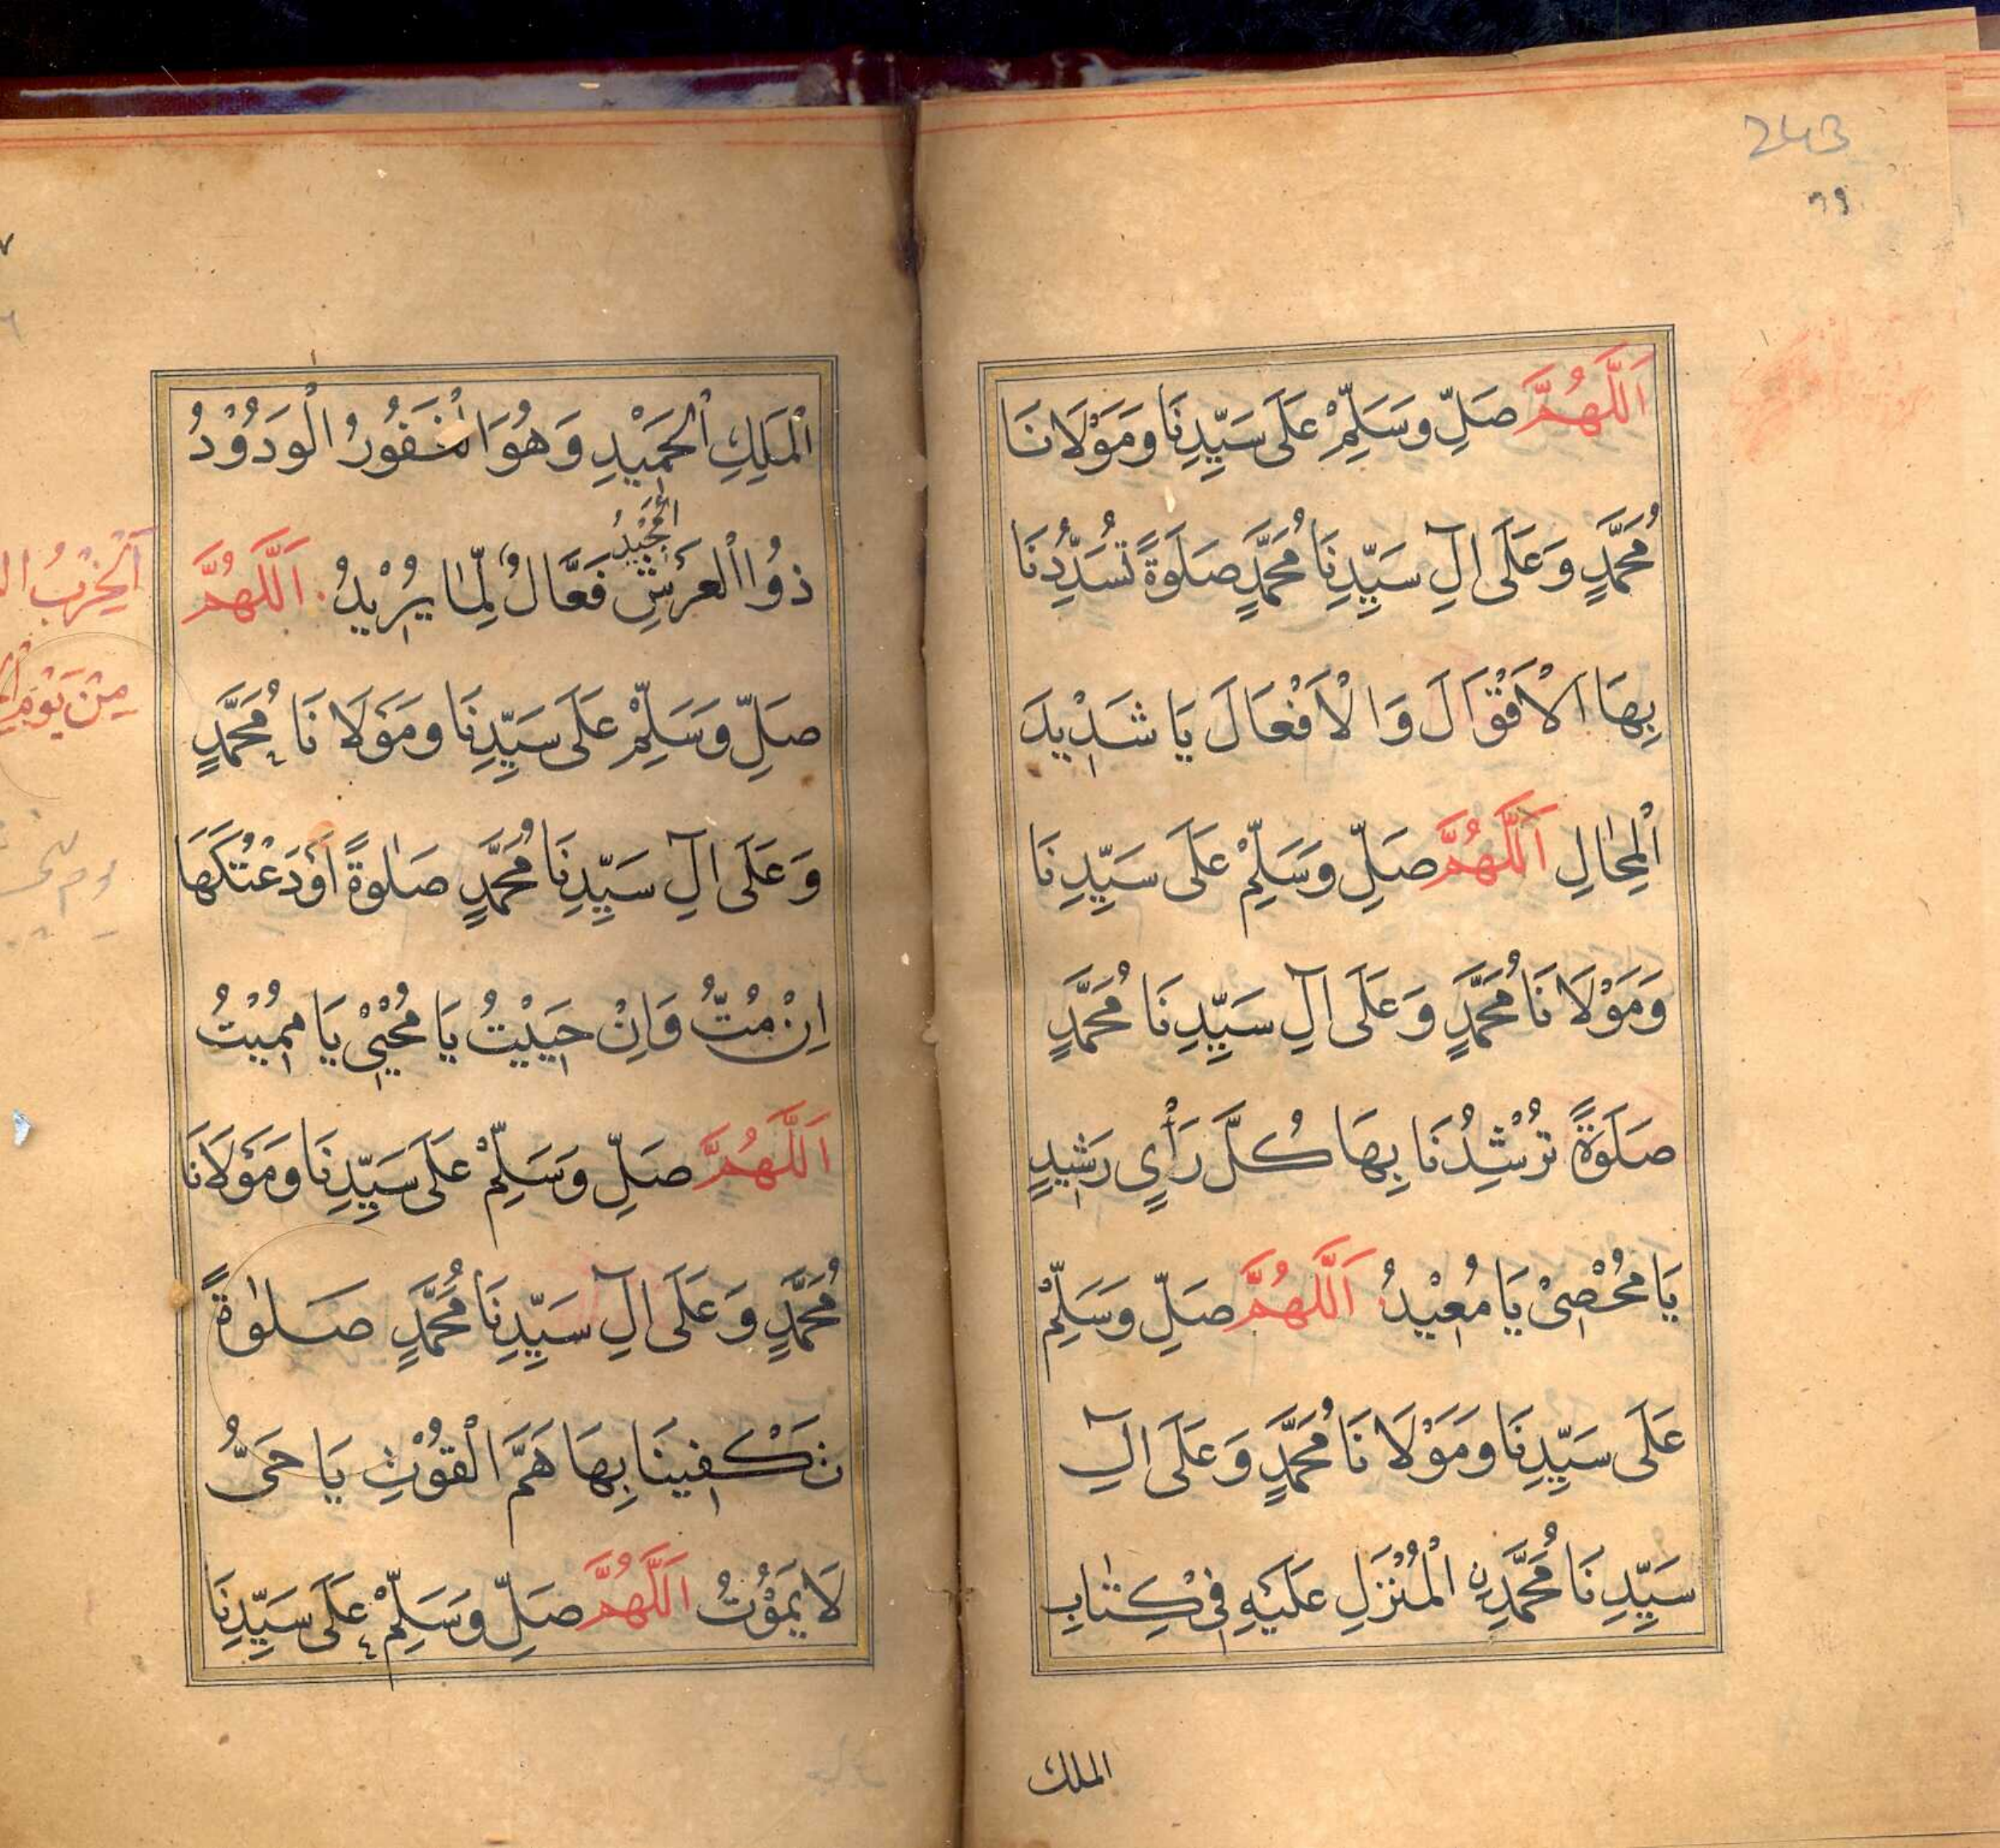 243
اَللّٰهُمَّ صَلِّ وَسَلِّمْ عَلَى سَيِّدِنَا وَمَوْلَانَا
مُحَمَّدٍ وَعَلَى اٰلِ سَيِّدِنَا مُحَمَّدٍ صَلَوةً تُسَدِّدُنَا
بِهَا الْاَقْوَالَ وَالْاَفْعَالَ يَا شَدِيْدَ
الْمِحَالِ اَللّٰهُمَّ صَلِّ وَسَلِّمْ عَلَى سَيِّدِنَا
وَمَوْلَانَا مُحَمَّدٍ وَعَلَى اٰلِ سَيِّدِنَا مُحَمَّدٍ
صَلَوةً تُرْشِدُنَا بِهَا كُلَّ رَأْيٍ رَشِيدٍ
يَا مُحْصِيْ يَا مُعِيْدُ اَللّٰهُمَّ صَلِّ وَسَلِّمْ
عَلَى سَيِّدِنَا وَمَوْلَانَا مُحَمَّدٍ وَعَلَى اٰلِ
سَيِّدِنَا مُحَمَّدِنِ الْمُنْزَلِ عَلَيْهِ فِيْ كِتٰابِ
الملك
اَلْمَلِكِ الْحَمِيْدِ وَهُوَ الْغَفُوْرُ الْوَدُوْدُ
ذُوا الْعَرْشِ الْمَجِيْدُ فَعَّالٌ لِّمَا يُرِيْدُ اَللّٰهُمَّ
صَلِّ وَسَلِّمْ عَلَى سَيِّدِنَا وَمَوْلَانَا مُحَمَّدٍ
وَعَلَى اٰلِ سَيِّدِنَا مُحَمَّدٍ صَلٰوةً اَوْدَعْتُكَهَا
اِنْ مُتُّ وَاِنْ حَيِيْتُ يَا مُحْيِيْ يَا مُمِيْتُ
اَللّٰهُمَّ صَلِّ وَسَلِّمْ عَلَى سَيِّدِنَا وَمَوْلَانَا
مُحَمَّدٍ وَعَلَى اٰلِ سَيِّدِنَا مُحَمَّدٍ صَلٰوةً
تَكْفِينَا بِهَا هَمَّ الْقُوْتِ يَا حَيُّ
لَا يَمُوْتُ اَللّٰهُمَّ صَلِّ وَسَلِّمْ عَلَى سَيِّدِنَا
اَلْحِزْبُ
مِنْ يَوْمِ